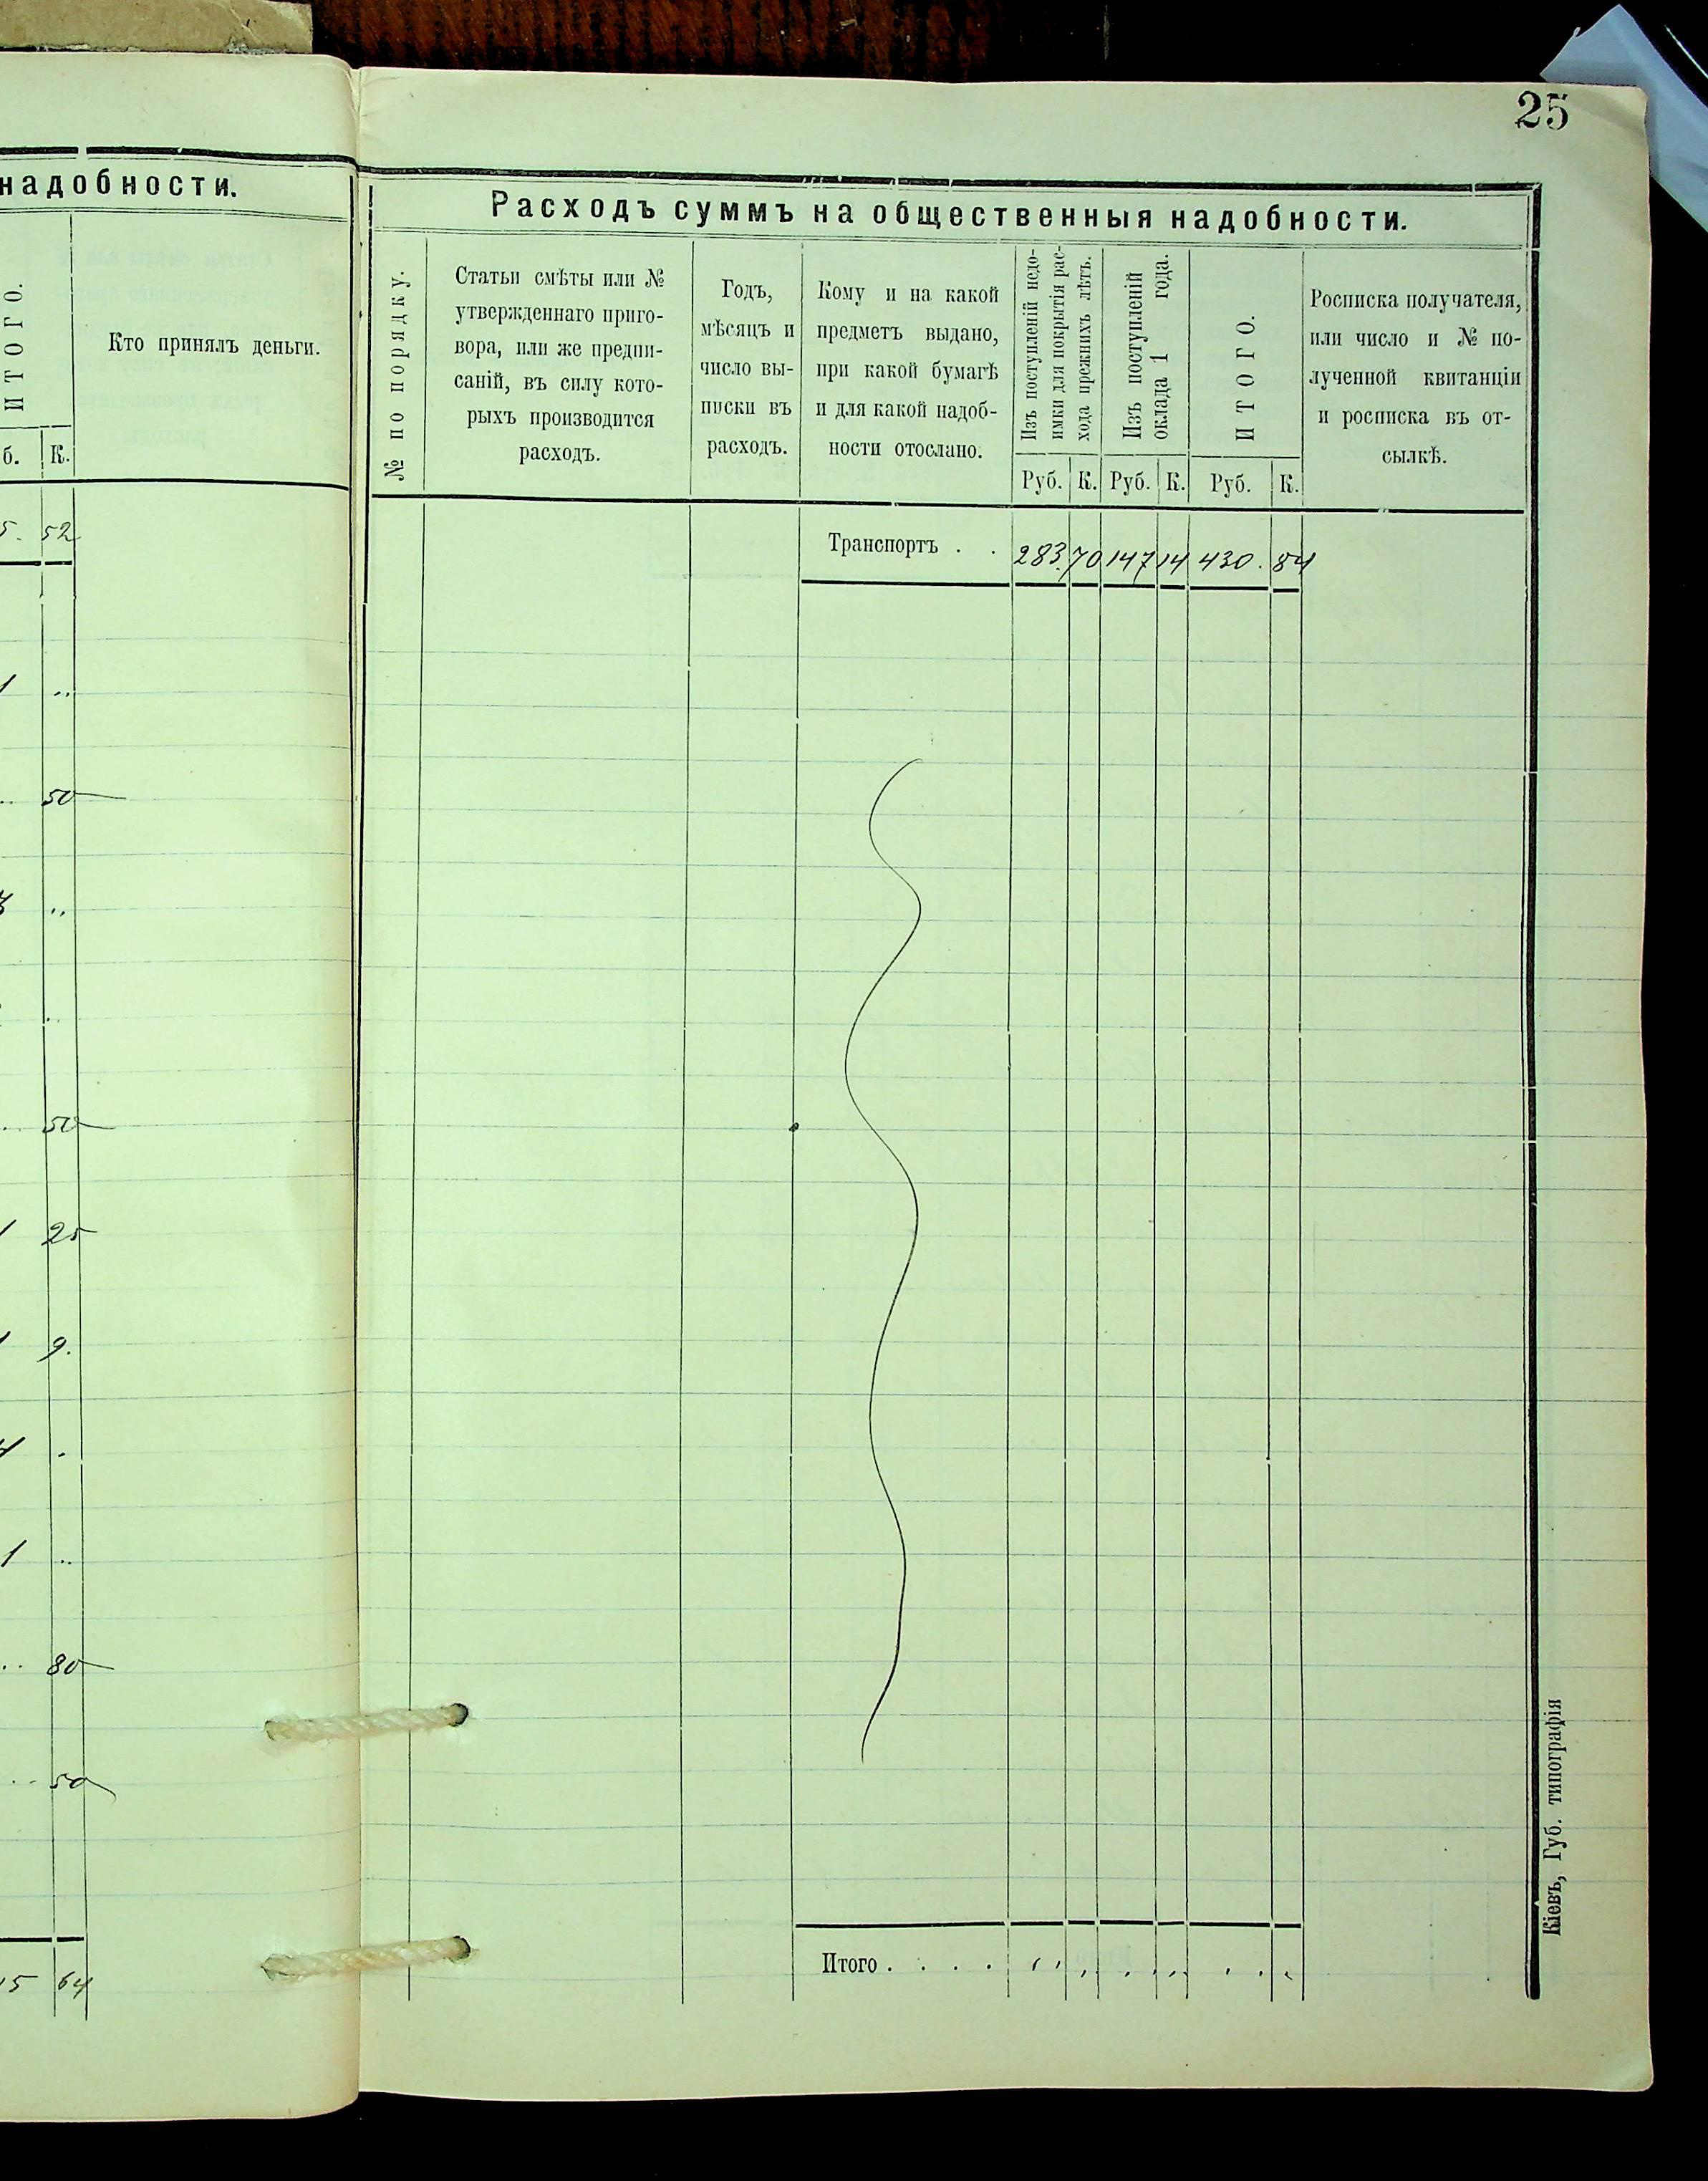 25
надобности.
ИТОГО.
Кто принялъ деньги.
б. К.
5. 52
1 ..
.. 50
..
..
.. 50
1 25
1 9.
.
1 ..
.. 80
.. 50
15 64
Расходъ суммъ на общественныя надобности.
№ по порядку.
Статьи смѣты или №
утвержденнаго приго-
вора, или же предпи-
саній, въ силу кото-
рыхъ производится
расходъ.
Годъ,
мѣсяцъ и
число вы-
писки въ
расходъ.
Кому и на какой
предметъ выдано,
при какой бумагѣ
и для какой надоб-
ности отослано.
Изъ поступленій недо-
имки для покрытія рас-
хода прежнихъ лѣтъ.
Изъ поступленій
оклада 1 года.
ИТОГО.
Росписка получателя,
или число и № по-
лученной квитанціи
и росписка въ от-
сылкѣ.
Руб. К. Руб. К. Руб. К.
Транспортъ . . 283. 70 147 14 430. 84
Итого . . . .
Кіевъ, Губ. типографія